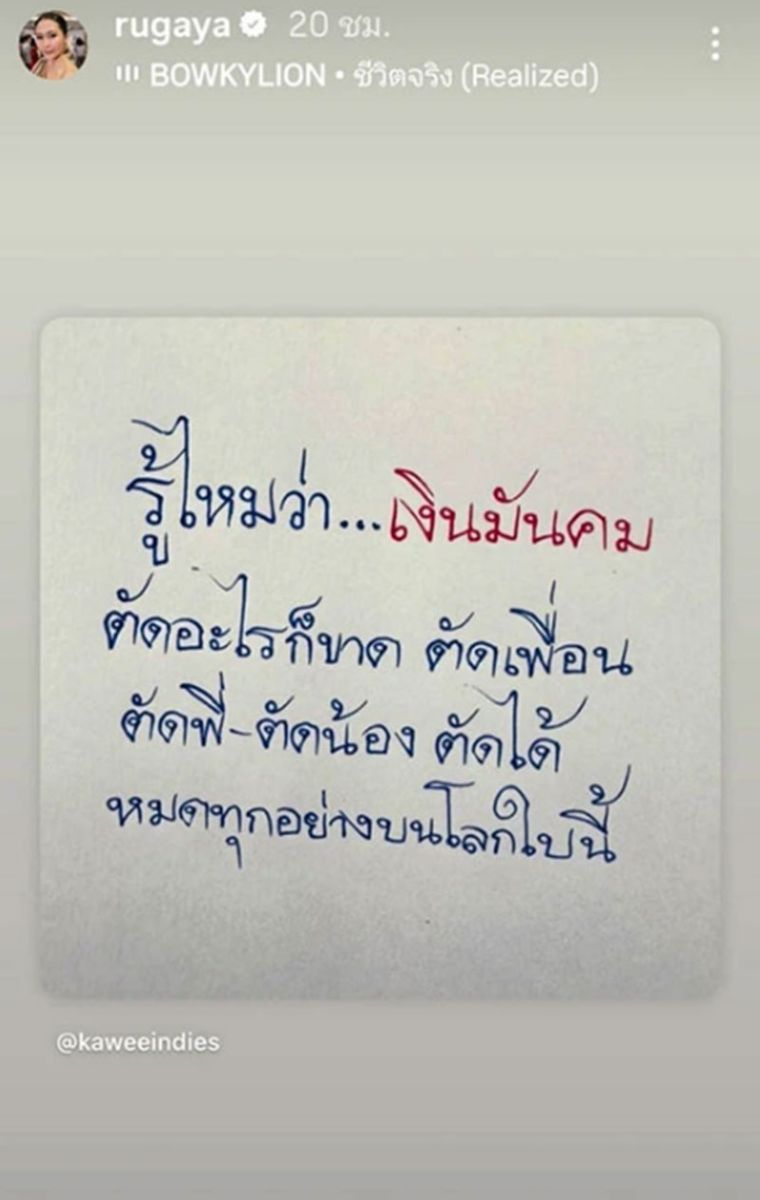 rugaya 20 ชม.
BOWKYLION • ชีวิตจริง (Realized)
รู้ไหมว่า...เงินมันคม
ตัดอะไรก็ขาด ตัดเพื่อน
ตัดพี่-ตัดน้อง ตัดได้
หมดทุกอย่างบนโลกใบนี้
@kaweeindies